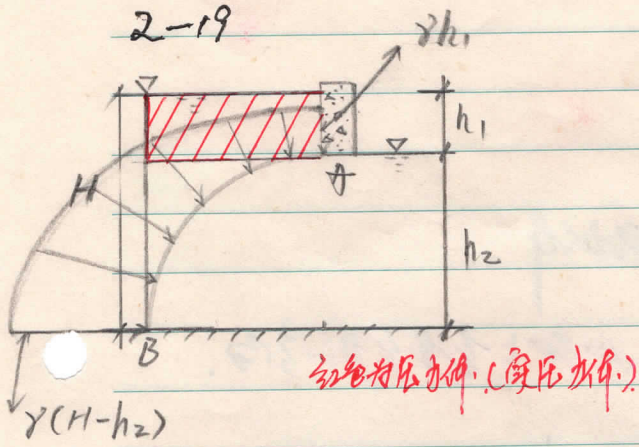 2-19
γh₁
h₁
A
H
h₂
B
红色为压力体.(实压力体.)
γ(H-h₂)